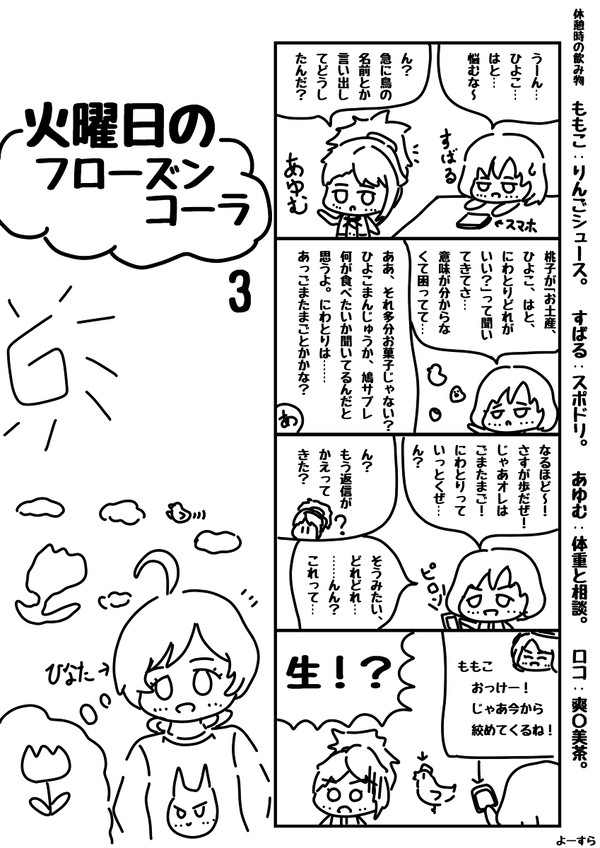 休憩時の飲み物 ももこ：りんごジュース。 すばる：スポドリ。 あゆむ：体重と相談。 ロコ：爽〇美茶。
火曜日の
フローズン
コーラ
3
うーん…
ひよこ…
はと…
悩むな〜
すばる
←スマホ
ん？
急に鳥の
名前とか
言い出し
てどうし
たんだ？
あゆむ
桃子が「お土産、
ひよこ、はと、
にわとりどれが
いい？」って聞い
てきてさ…
意味が分からな
くて困ってて…
ああ、それ多分お菓子じゃない？
ひよこまんじゅうか、鳩サブレ
何が食べたいか聞いてるんだと
思うよ。にわとりは……
あっごまたまごとかかな？
あ
なるほど〜！
さすが歩だぜ！
じゃあオレは
ごまたまご！
にわとりって
いっとくぜ…
ん？
もう返信が
かえって
きた？
?
ピロン
そうみたい、
どれどれ…
……ん？
これって…
ももこ
おっけー！
じゃあ今から
絞めてくるね！
生！？
ひなた→
よーすら